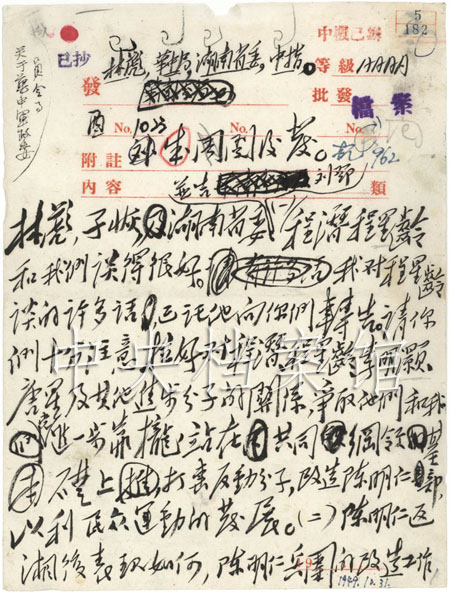 5
182
已抄
林彪,華中局,湖南省委,
等級 AAAA
發
批發
檔案
酉 No.1023 No. No.
朱周閱後發。
962
附註
內容 並告 劉鄧 類
林彪,子恢,湖南省委:(一)程潛程星齡
和我們談得很好。我对程星齡
談的許多話,已託他向你們轉告,請你
們十分注意,搞好对程潛程星齡李明灝
唐星及其他進步分子的關係,爭取他們和我
們進一步靠攏,站在共同綱領的基
礎上打擊反動分子,改造陳明仁部,
以利民众運動的發展。(二)陳明仁返
湘後表現如何,陳明仁兵團的改造工作,
9
1949.10.31.
中央档案馆